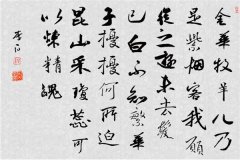 金華牧羊兒乃
是紫烟客我願
從之遊未去髮
已白不知繁華
子擾擾何所迫
昆山采瓊蕊可
以煉精魄